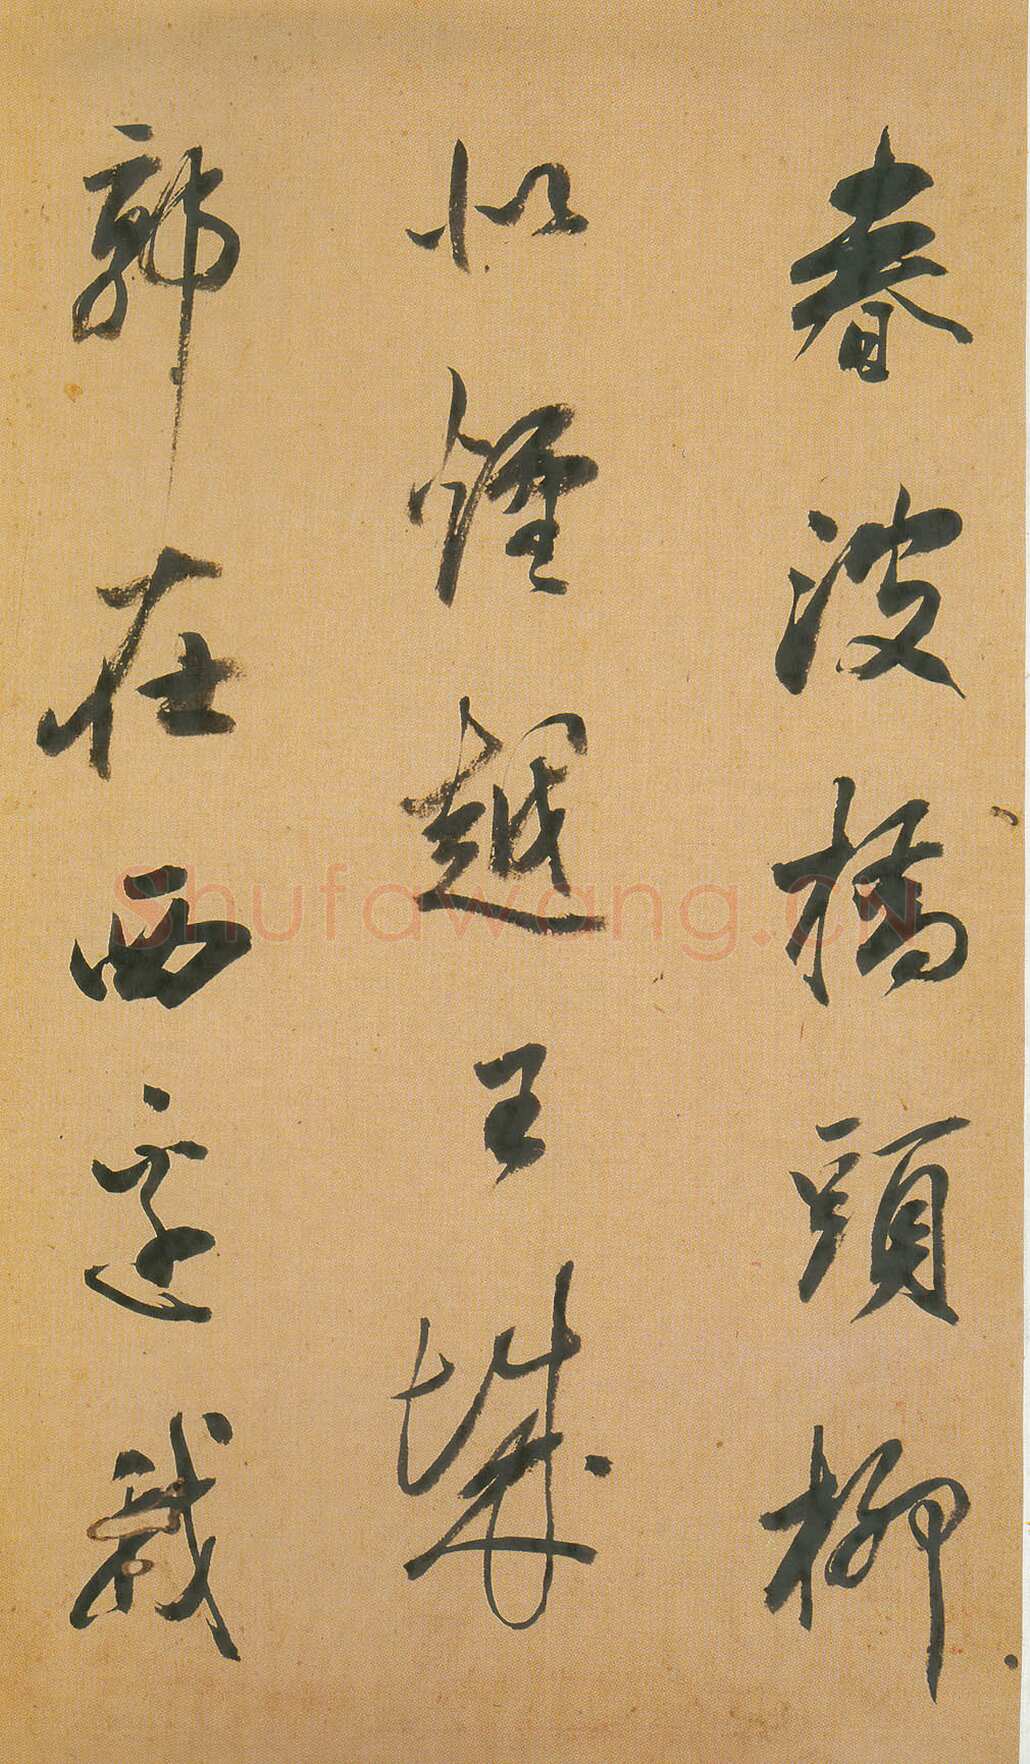 春波橋頭柳
似煙越王城
郭在西邊戲
Shufawang.CN